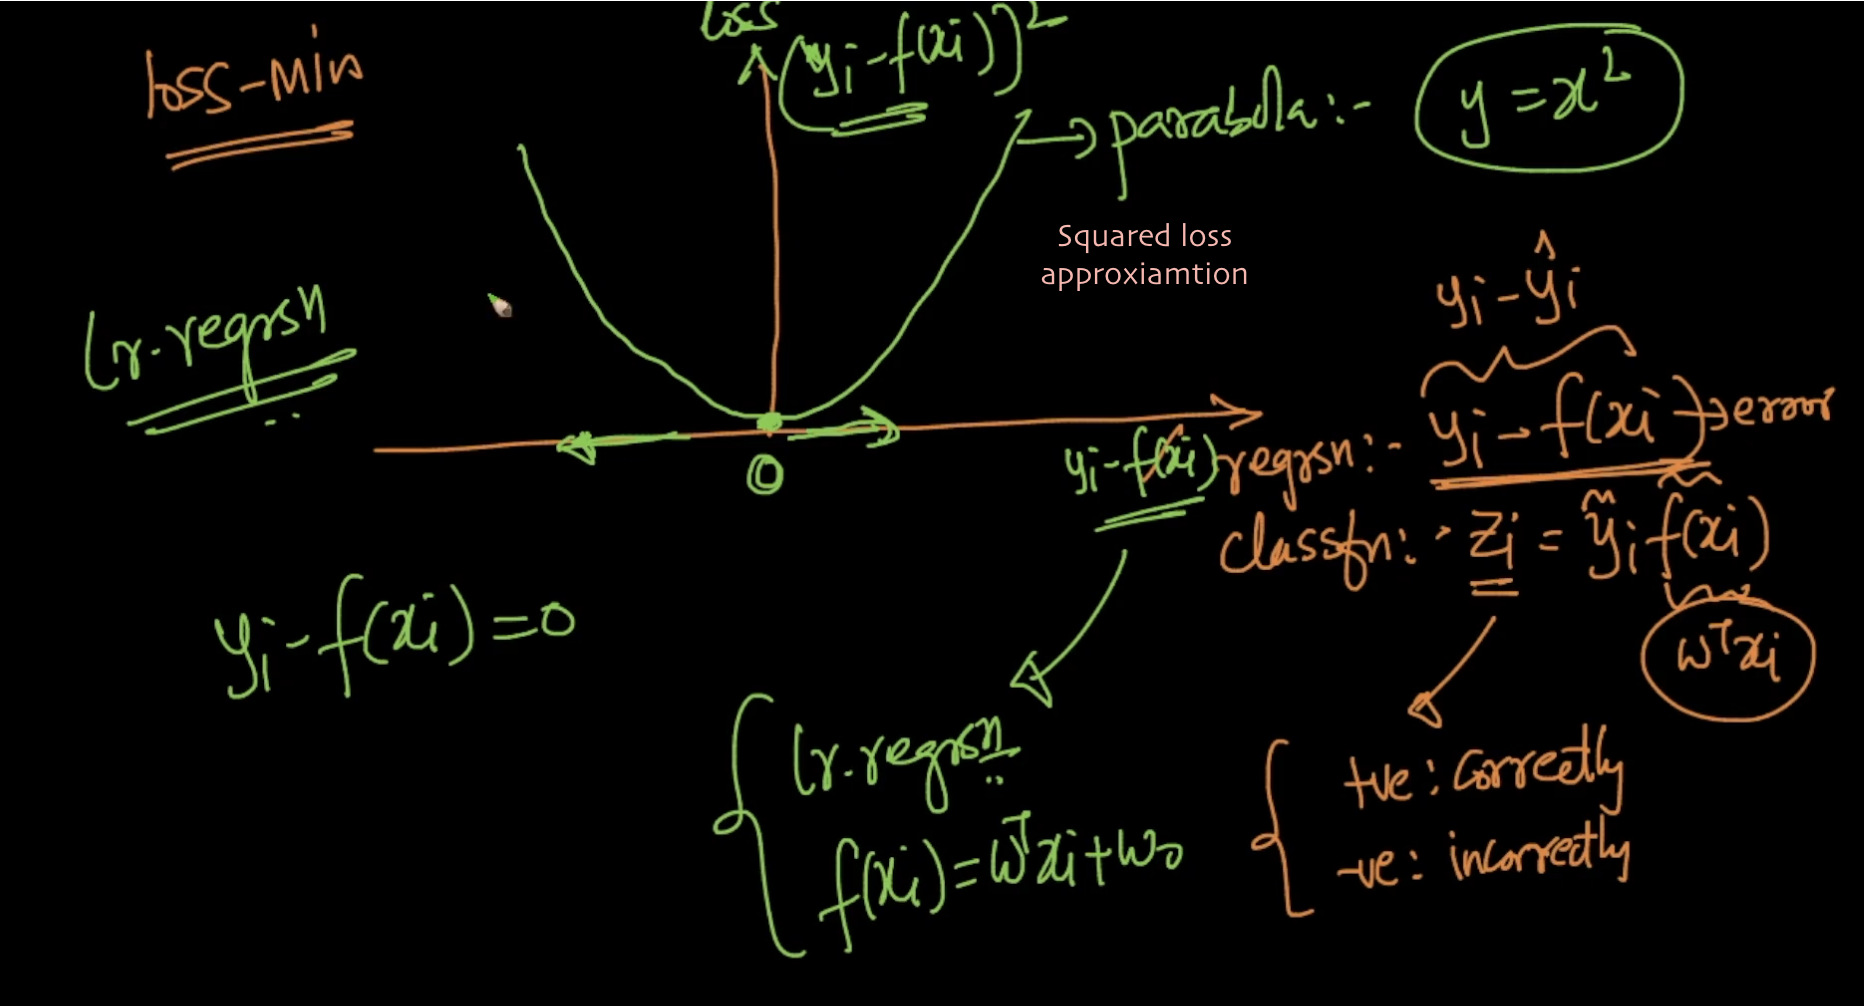 loss-min
loss
(yi-f(xi))²
parabola:-
y=x²
Squared loss
approxiamtion
lr.regrsn
yi-ŷi
yi-f(xi)
regrsn:-
yi-f(xi)→error
classfn:
zi = yi f(xi)
wᵀxi
0
yi-f(xi)=0
lr.regrsn
f(xi)=wᵀxi+w₀
+ve: correctly
-ve: incorrectly